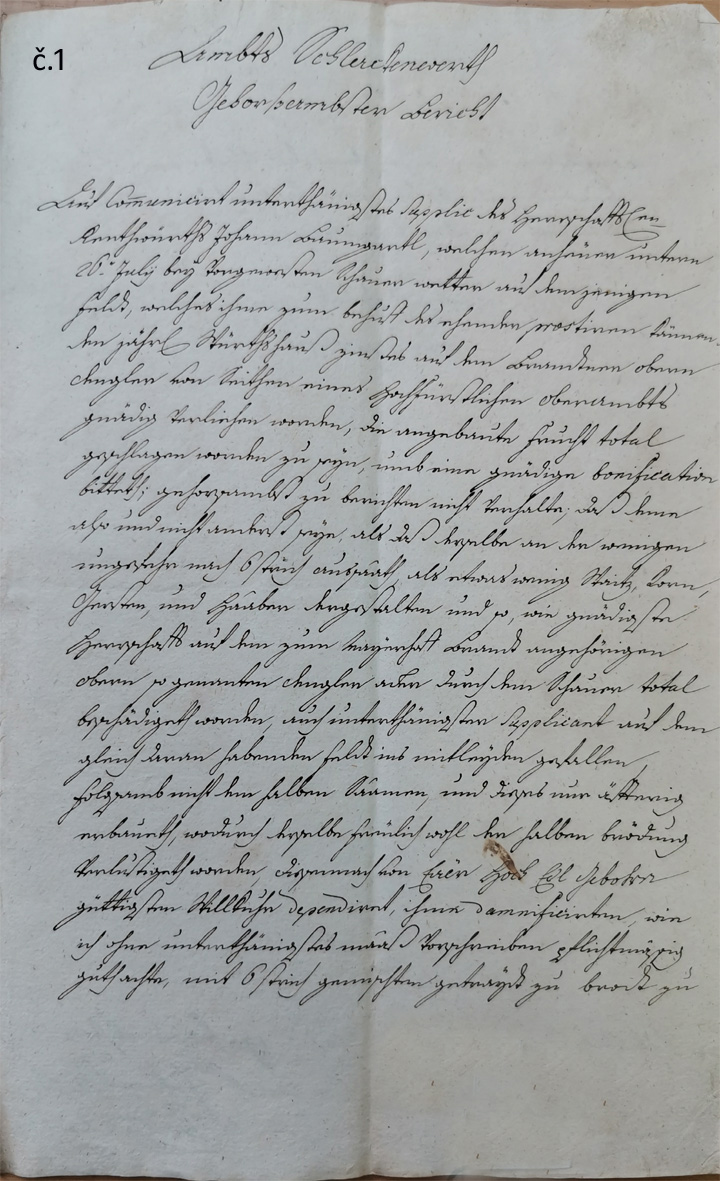 č.1
Ambts Schlackenwerth
Gehorsambster Bericht
Auf Communicirt unterthänigstes Supplic des Herrschafftlichen
Renthwürths Johann Baumgartl, welchen anheuer unterm
26. July bey Vorgewesten Schauer wetter auf demjenigen
feldt, welches ihme zum behuff des ehender praestiren können-
den jährl. Würthshauß zinßes auf dem Brandtner obern
Anglen von Seithen eines Hochfürstlichen oberambts
gnädig Verliehen worden, die angebaute Frucht total
geschlagen worden zu seyn, umb eine gnädige bonification
bittet; gehorsambst zu berichten nicht Verhalte, daß deme
also und nicht anderst seye, als daß derselbe an der wenigen
ungefehr nach 6 strich aussaath, als etwas wenig Waitz, Korn,
Gersten, und Haaber dergestalten und so, wie gnädigste
Herrschafft auf dem zum Mayerhoff Brandt angehörigen
obern so genanten Anglen acker durch den Schauer total
beschädigeth worden, auch unterthänigster Supplicant auf dem
gleich daran habenden feldt ins mitleyden gefallen,
folgsamb nicht den halben Saamen, und dieses nur äfterig
erbaueth, wodurch derselbe freulich wohl der halben brödung
Verlustigeth worden, disemnach von Euer Hoch Edl Gebohrn
güttigsten Willkuhr dependiret, ihme damnificirten, wie
ich ohne unterthänigstes maaß Vorschreiben pflichtmäßig
gutachte, mit 6 strich gemischten getraydt zu brodt zu